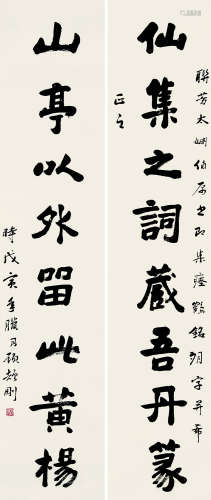 聯芳太姻伯屬書即集瘞鶴銘朋字并希
正之
仙集之詞藏吾丹篆
山亭以外留此黃楊
時戊寅年臘月顧頡剛